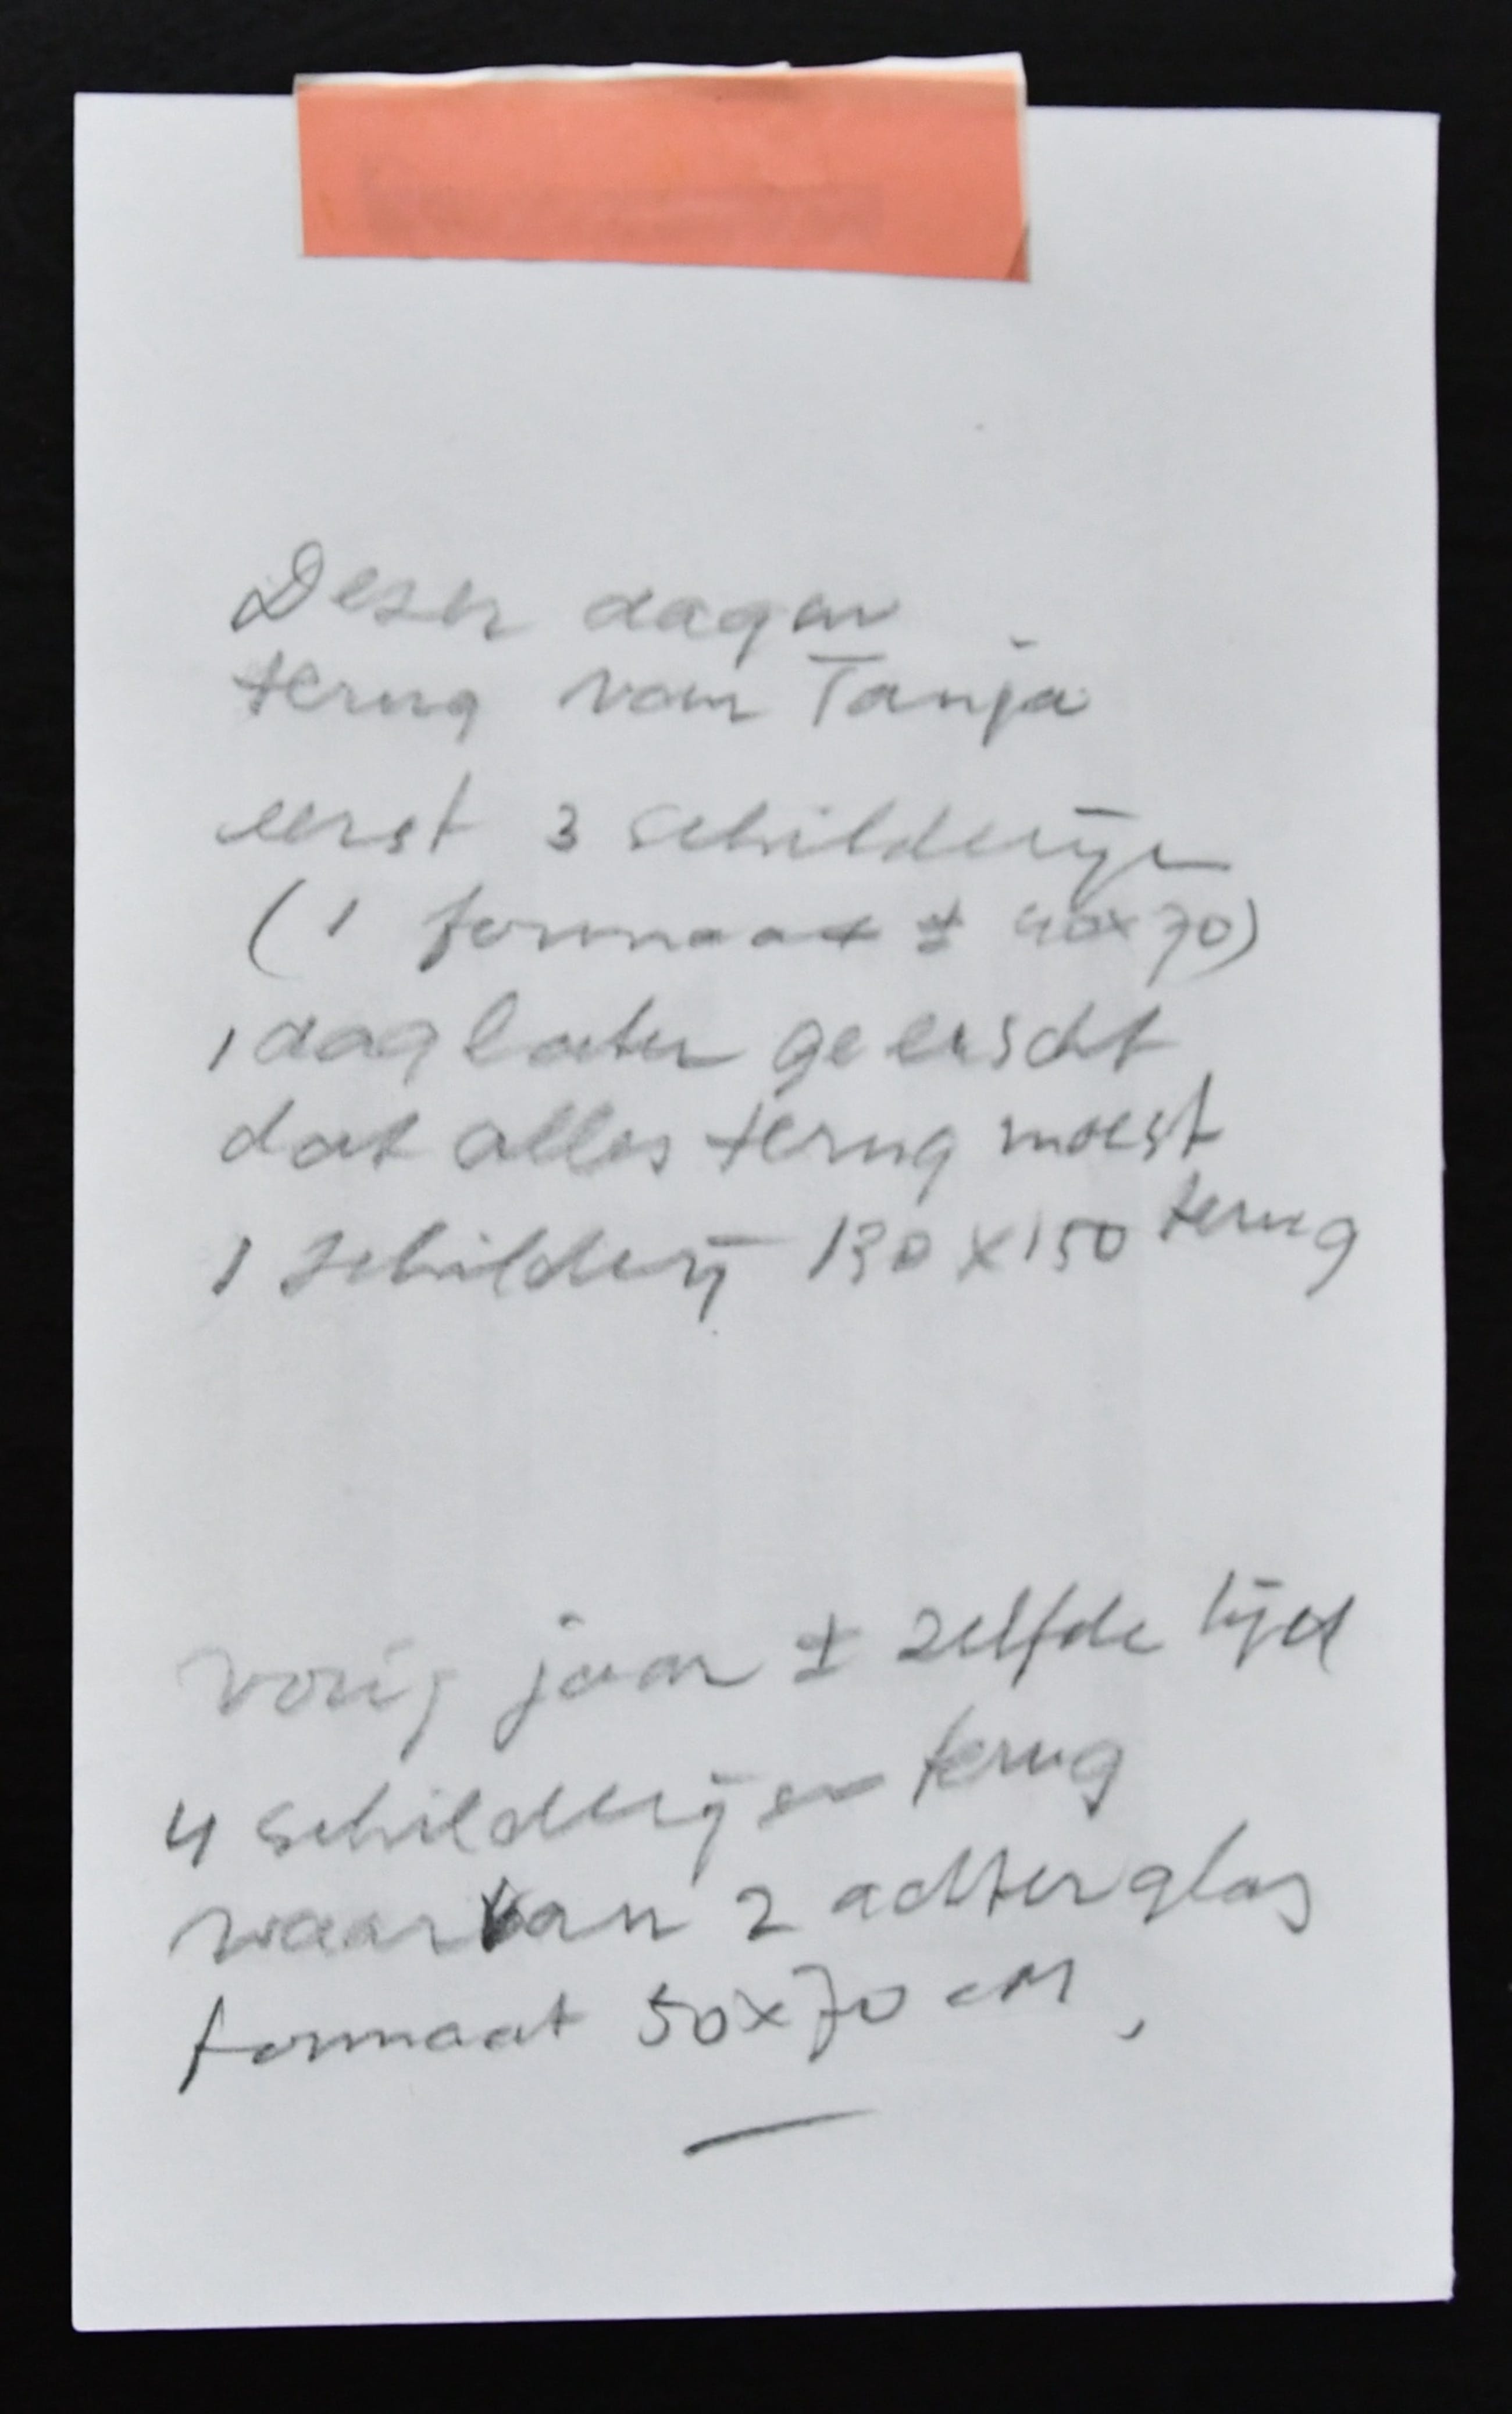 Dezer dagen
terug van Tanja
eerst 3 schilderijen
(1 formaat ± 40x70)
1 dag later geeischt
dat alles terug moest
1 schilderij 130 x 150 terug
vorig jaar ± zelfde tijd
4 schilderijen terug
waarvan 2 achter glas
formaat 50x70 cM,